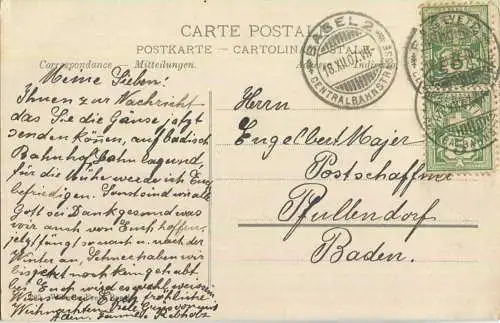 CARTE POSTALE
POSTKARTE - CARTOLINA POSTALE
Correspondance Mitteilungen. Adresse Indirizzo
BASEL 2
18.XII.07.
CENTRALBAHNSTRASSE
Meine Lieben!
Ihnen zur Nachricht
das Sie die Gänse jetzt
senden können, auf badisch
Bahnhof Bahnlagernd,
für die Mühe werde ich Euch
befriedigen. Sonst sind wir alle
Gott sei Dank gesund was
wir auch von Euch hoffen,
jetzt fängt so nach u. nach der
Winter an, Schnee haben wir
bis jetzt noch kein gehabt
bei Euch wird es wohl
wünschen Euch fröhliche
Weihnachten. Viele Grüsse von uns
Allen. Familie Rebholz
Herrn
Engelbert Majer
Postschaffner
Pfullendorf
Baden.